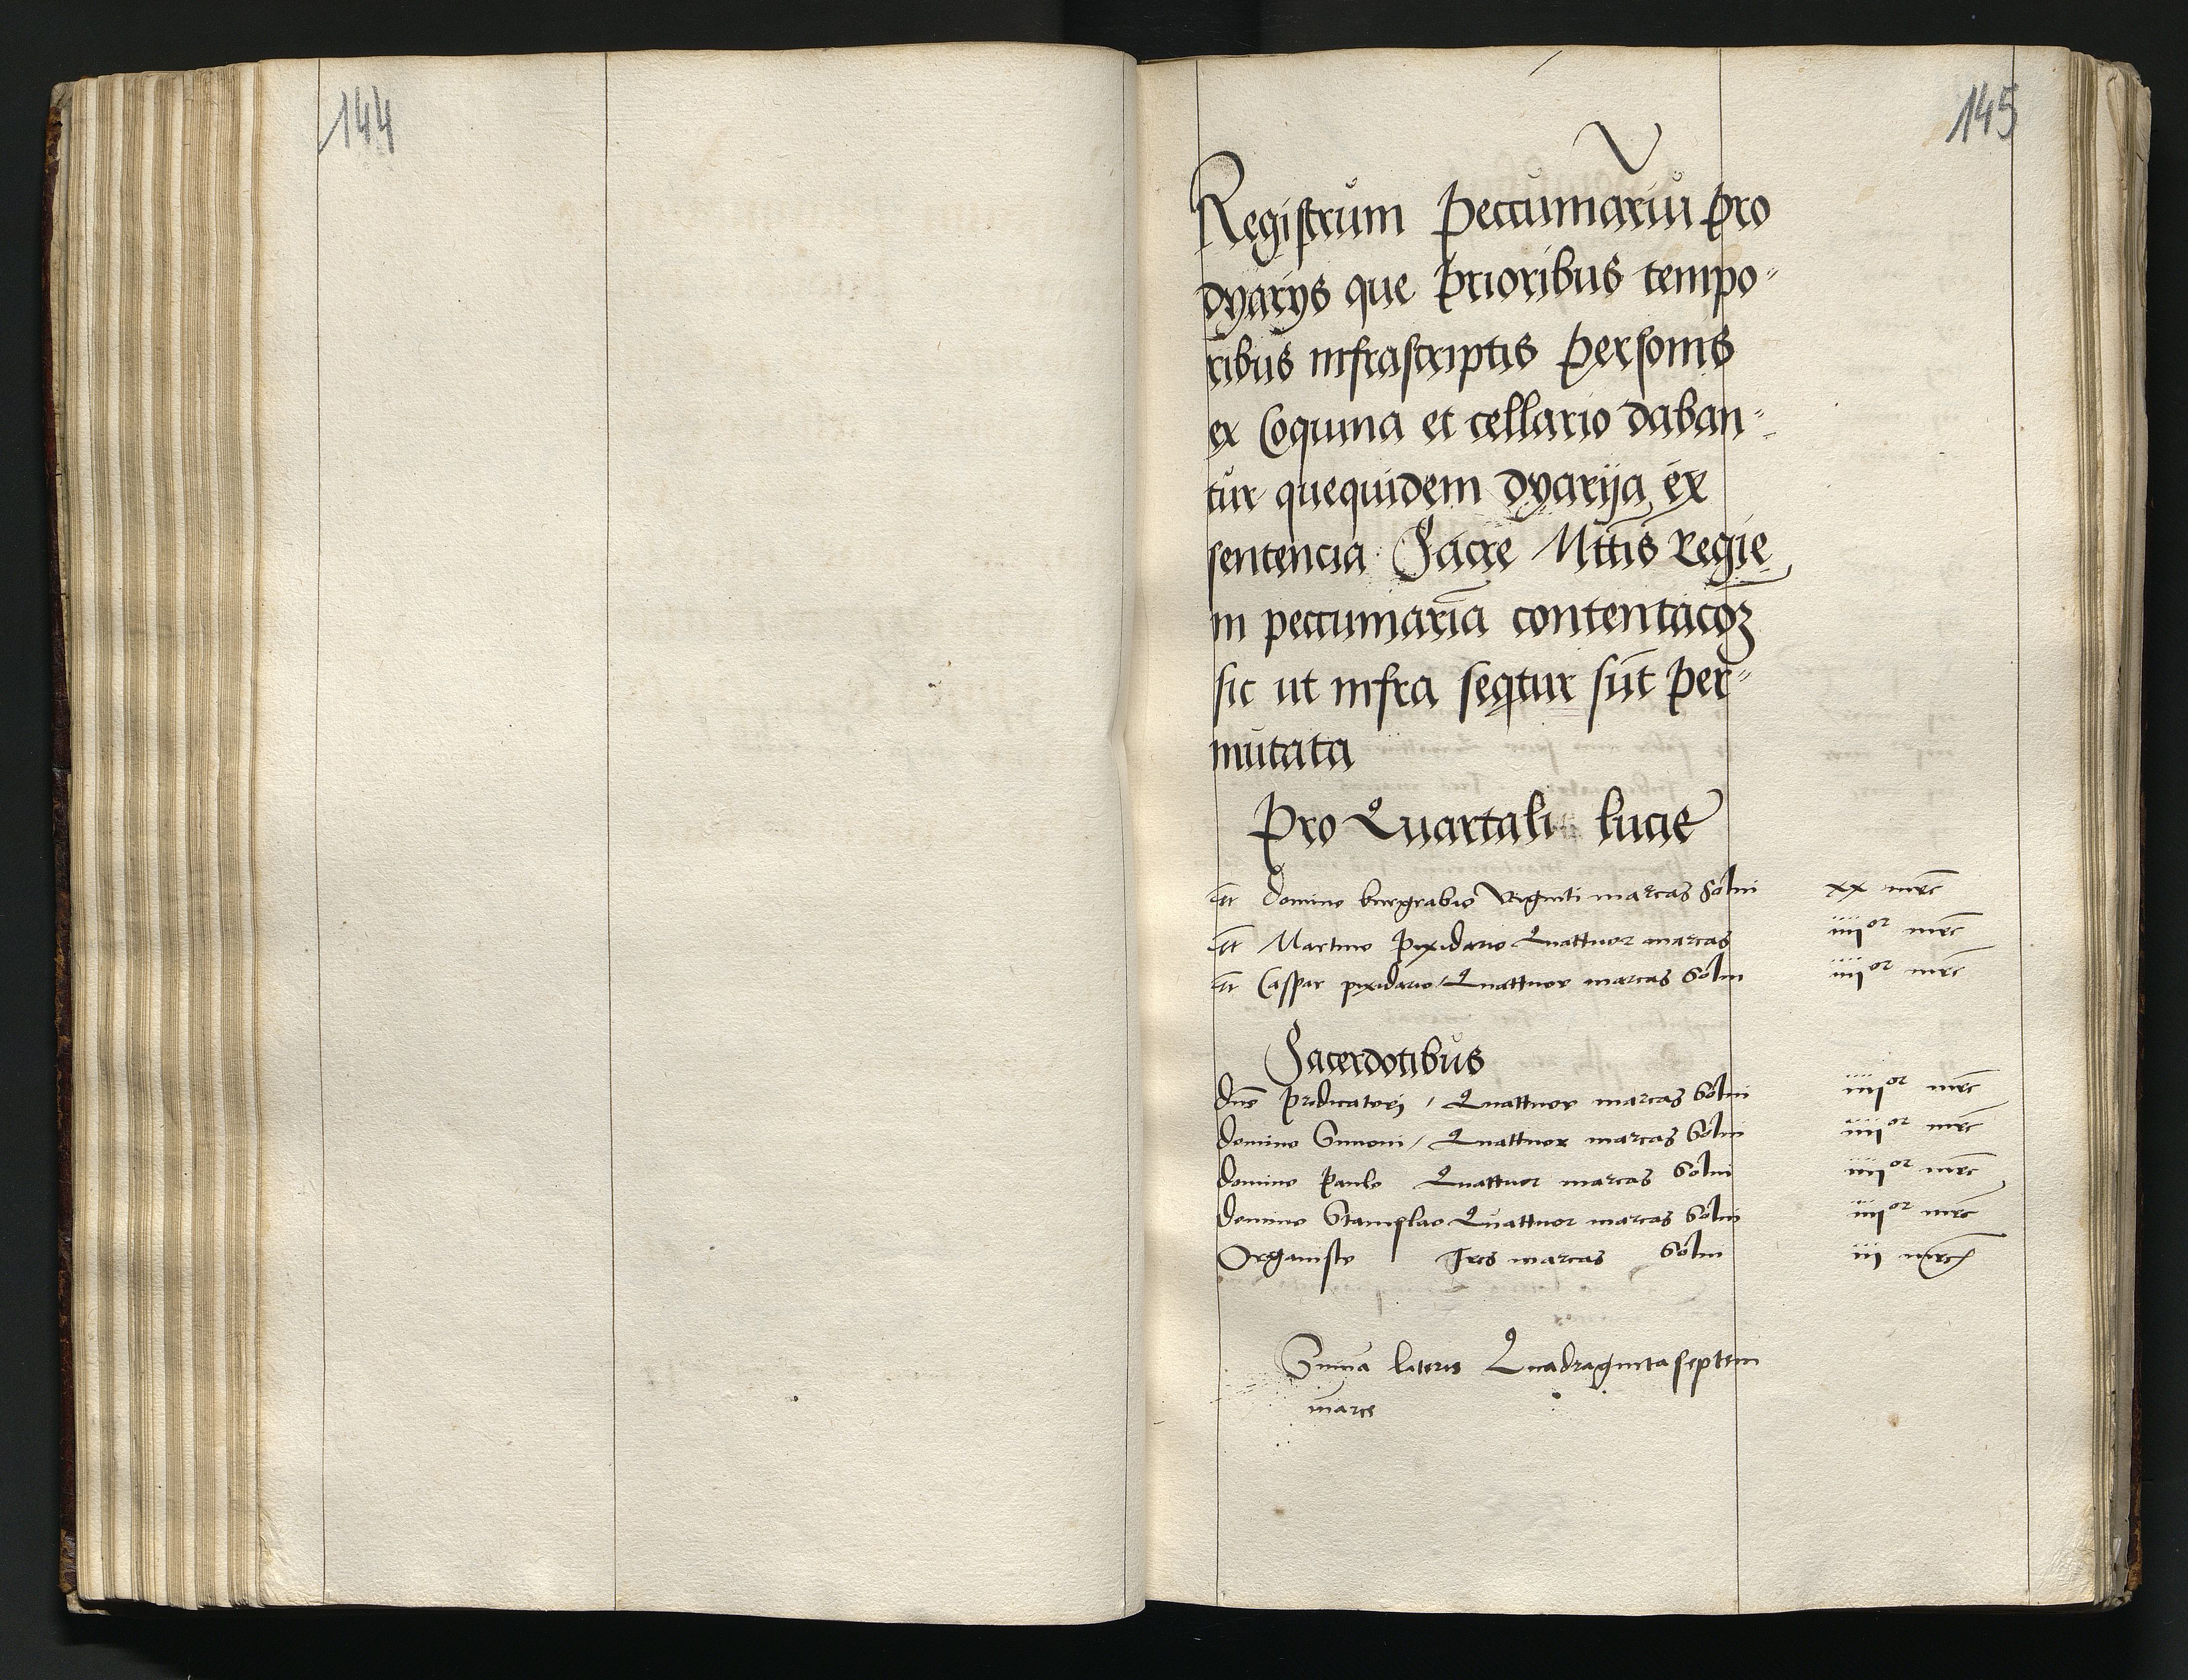 144
145
Registrum Peccuniariu pro
dyarys que prioribus tempo=
ribus infrascriptis personis
ex Coquina et cellario daban=
tur quequidem dyarija ex
sentencia Sacre Mttis Regie
in peccuniaria contentacoz
sic ut infra seqtur sut per=
mutata
Pro Quartali lucie
Itt Domino burgrabio Viginti marcas solui xx mrc
Itt Martino Pixidario Quattuor marcas iiiior mrc
Itt Caspar pixidario / Quattuor marcas Solui iiiior mrc
Sacerdotibus
Dno predicatori / Quattuor marcas Solui iiiior mrc
Domino Simoni / Quattuor marcas Solui iiiior mrc
Domino Paulo Quattuor marcas Solui iiiior mrc
Domino Stanislao Quattuor marcas Solui iiiior mrc
Organiste Tres marcas Solui iii mrc
Suma lateris Quadragintaseptem
marcs